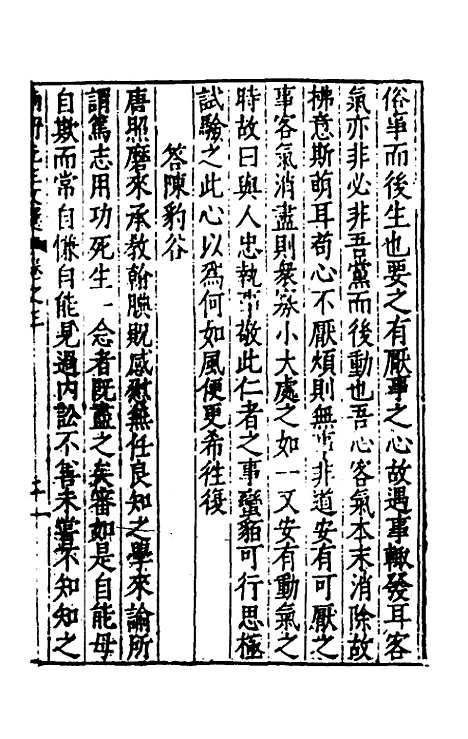 俗事而後生也要之有厭事之心故遇事輙發耳客
氣亦非必非吾黨而後動也吾心客氣本末消除故
拂意斯萌耳苟心不厭煩則無事非道安有可厭之
事客氣消盡則衆寡小大處之如一又安有動氣之
時故曰與人忠執事敬此仁者之事蠻貊可行思極
試驗之此心以爲何如風便更希徃復
答陳豹谷
唐照磨來承教翰腆貺感慰無任良知之學來諭所
謂篤志用功死生一念者既盡之矣審如是自能毋
自欺而常自慊自能見過内訟不善未嘗不知知之
卷之三